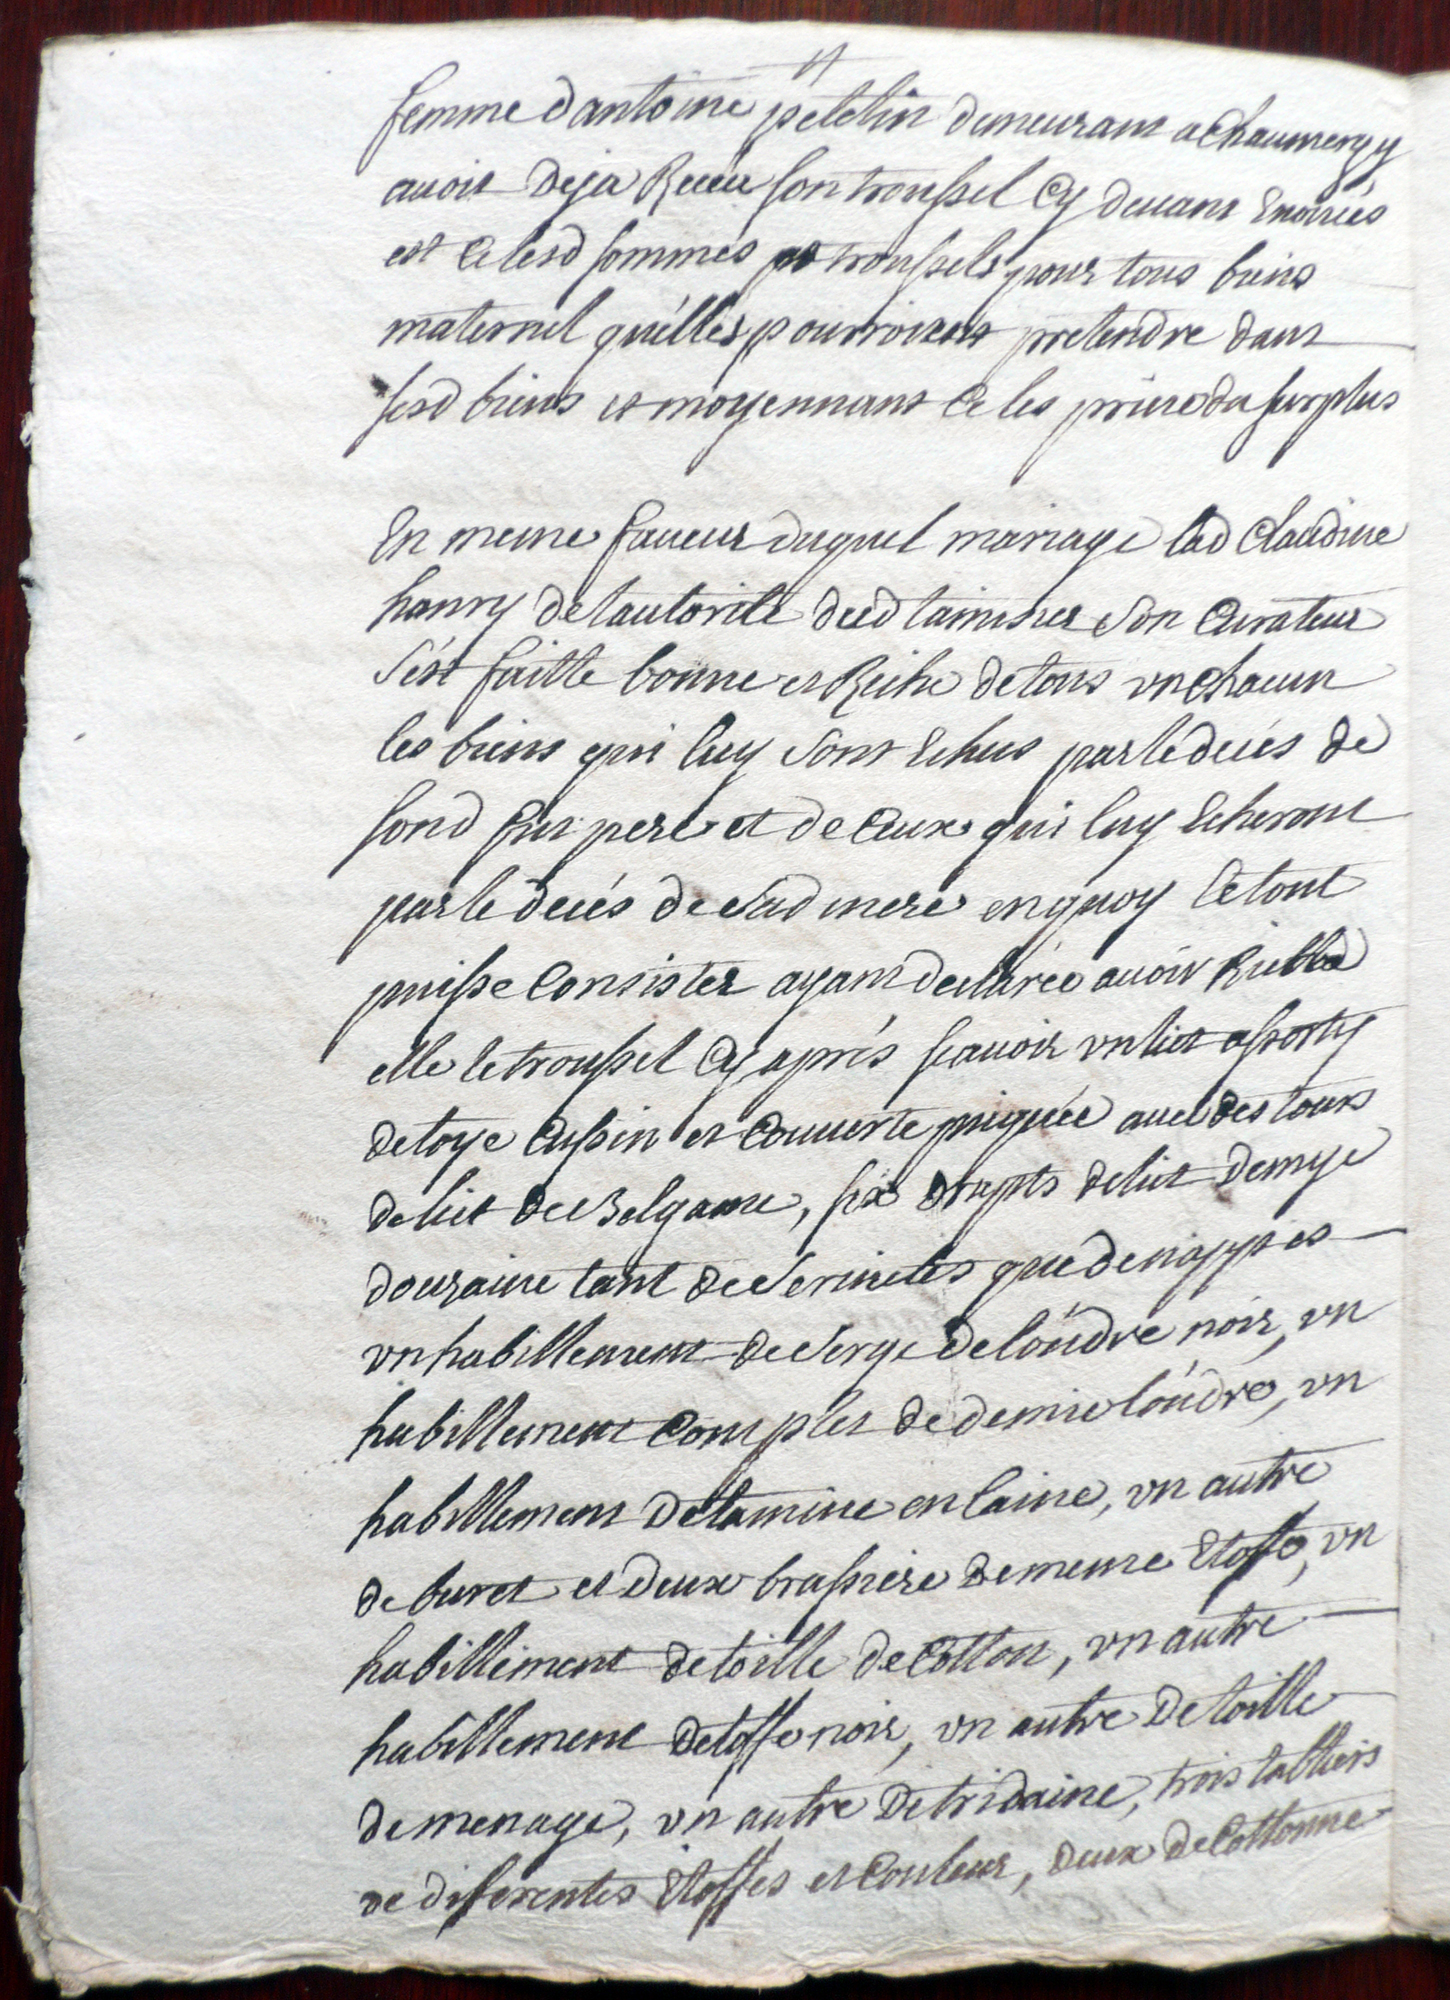 femme d antoine peletin demeurant a Chaumergy
avoir deja Receu son troussel Cy devant Enoncés
est Ce lesd sommes et troussels pour tous biens
maternel quélles pourroient pretendre dans
sesd biens et moyennant Ce les prive du surplus
En meme faveur duquel mariage lad Claudine
hanry de lautorité dud son Curateur
s'ést faitte bonne et Riche de tous un Chacun
les biens qui luy sont Echus par le decés de
sond fut pere et de Ceux qui luy Echeront
par le decés de sad mere en quoy le tout
puisse Consister ayant declarée avoir Riere
elle le troussel Cy aprés scavoir un lict assorty
de toye Cussin et Couverte piquée avec des tours
de lict de Belgame, six drapts de lict demye
douzaine tant de serviettes que de nappes
un habillement de serge de loúdre noir, un
habillement Complet de demie loúdre, un
habillement detamine en laine, un autre
de buret et deux brassiere de meme Etoffe, un
habillement de toille de Cotton, un autre
habillement detoffe noir, un autre De toille
de menage, un autre De tridaine, trois tabliers
de diferentes Etoffes et Couleur, deux de Cottonne